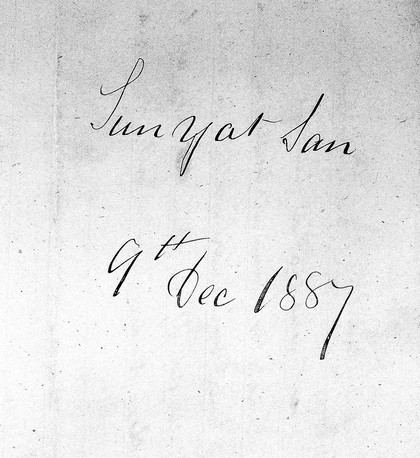 Sun yat San
9th Dec 1887